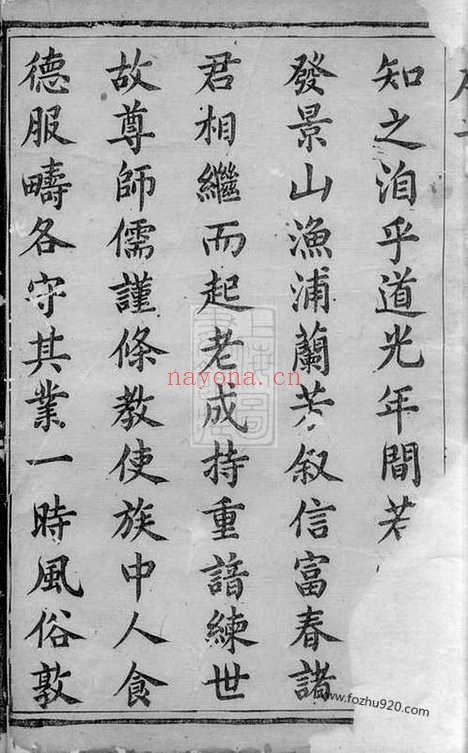 知之洎乎道光年間若
發景山漁浦蘭芳叙信富春諸
君相繼而起老成持重諳練世
故尊師儒謹條教使族中人食
德服疇各守其業一時風俗敦
nayona.cn
www.fozhu920.com